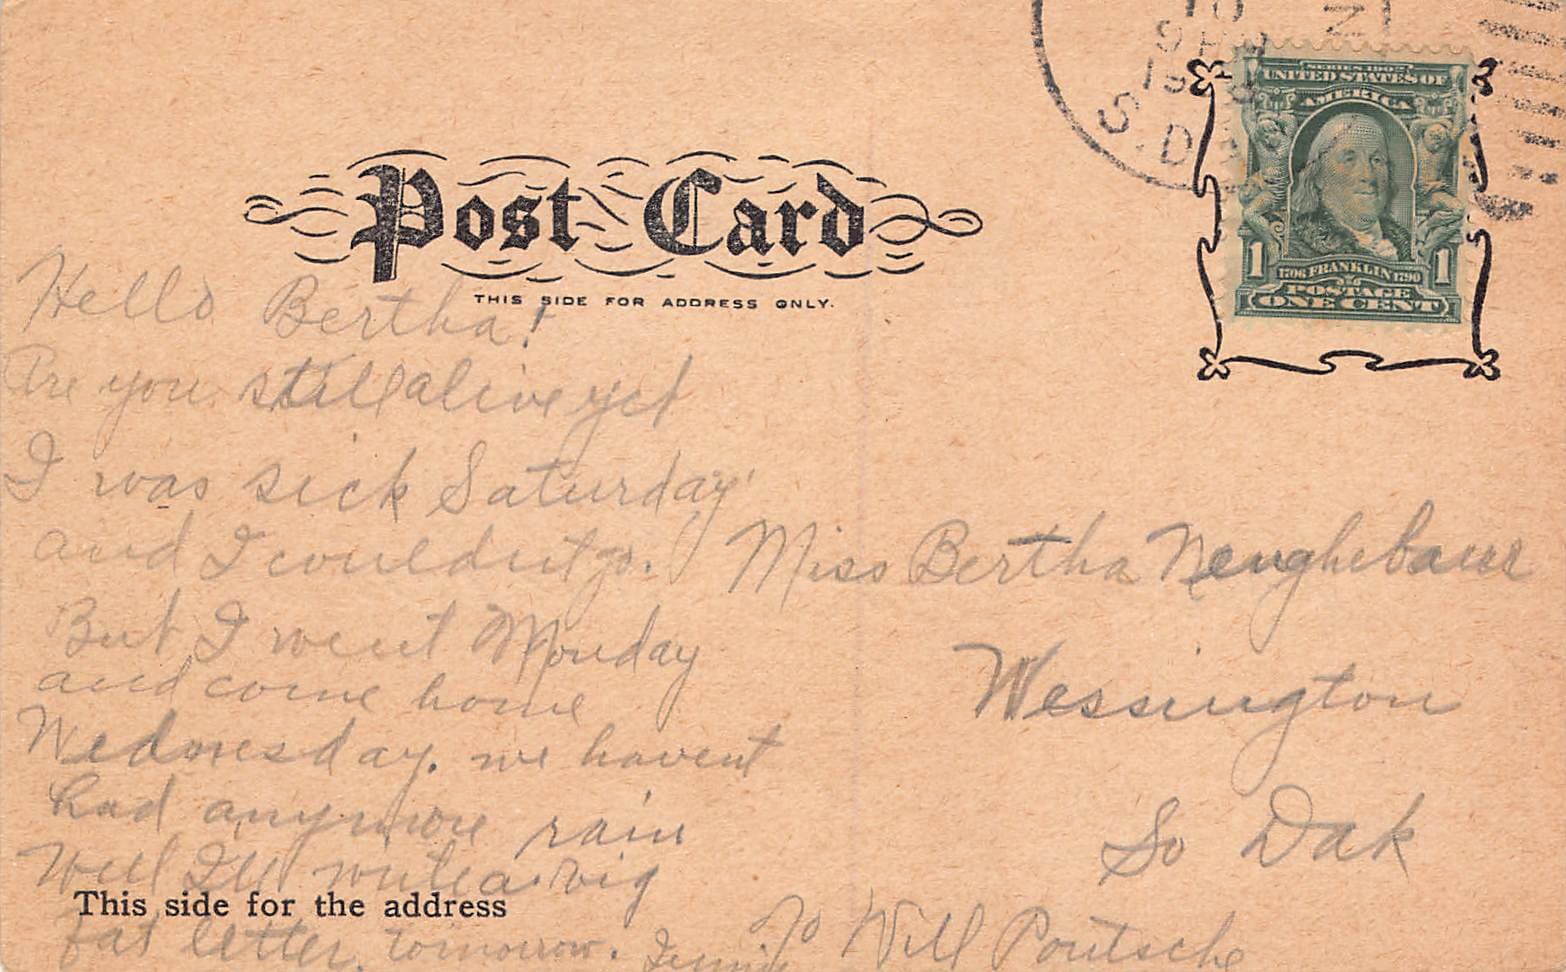 10
9 
19
S.D
SERIES 1902
UNITED STATES OF
AMERICA
1
1706 FRANKLIN 1790
1
POSTAGE
ONE CENT
Post Card
THIS SIDE FOR ADDRESS ONLY.
Hello Bertha!
Are you still alive yet
I was sick Saturday
and I couldnt go.
But I went Monday
and come home
Wednesday. we havent
had anymore rain
Well Ill write a big
This side for the address
fat letter tomorrow.
Miss Bertha Neughebauer
Wessington
So Dak
To Will Poutsche